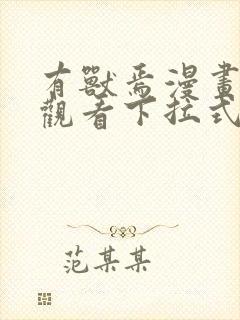 有獸焉漫畫
觀看下拉式
范某某